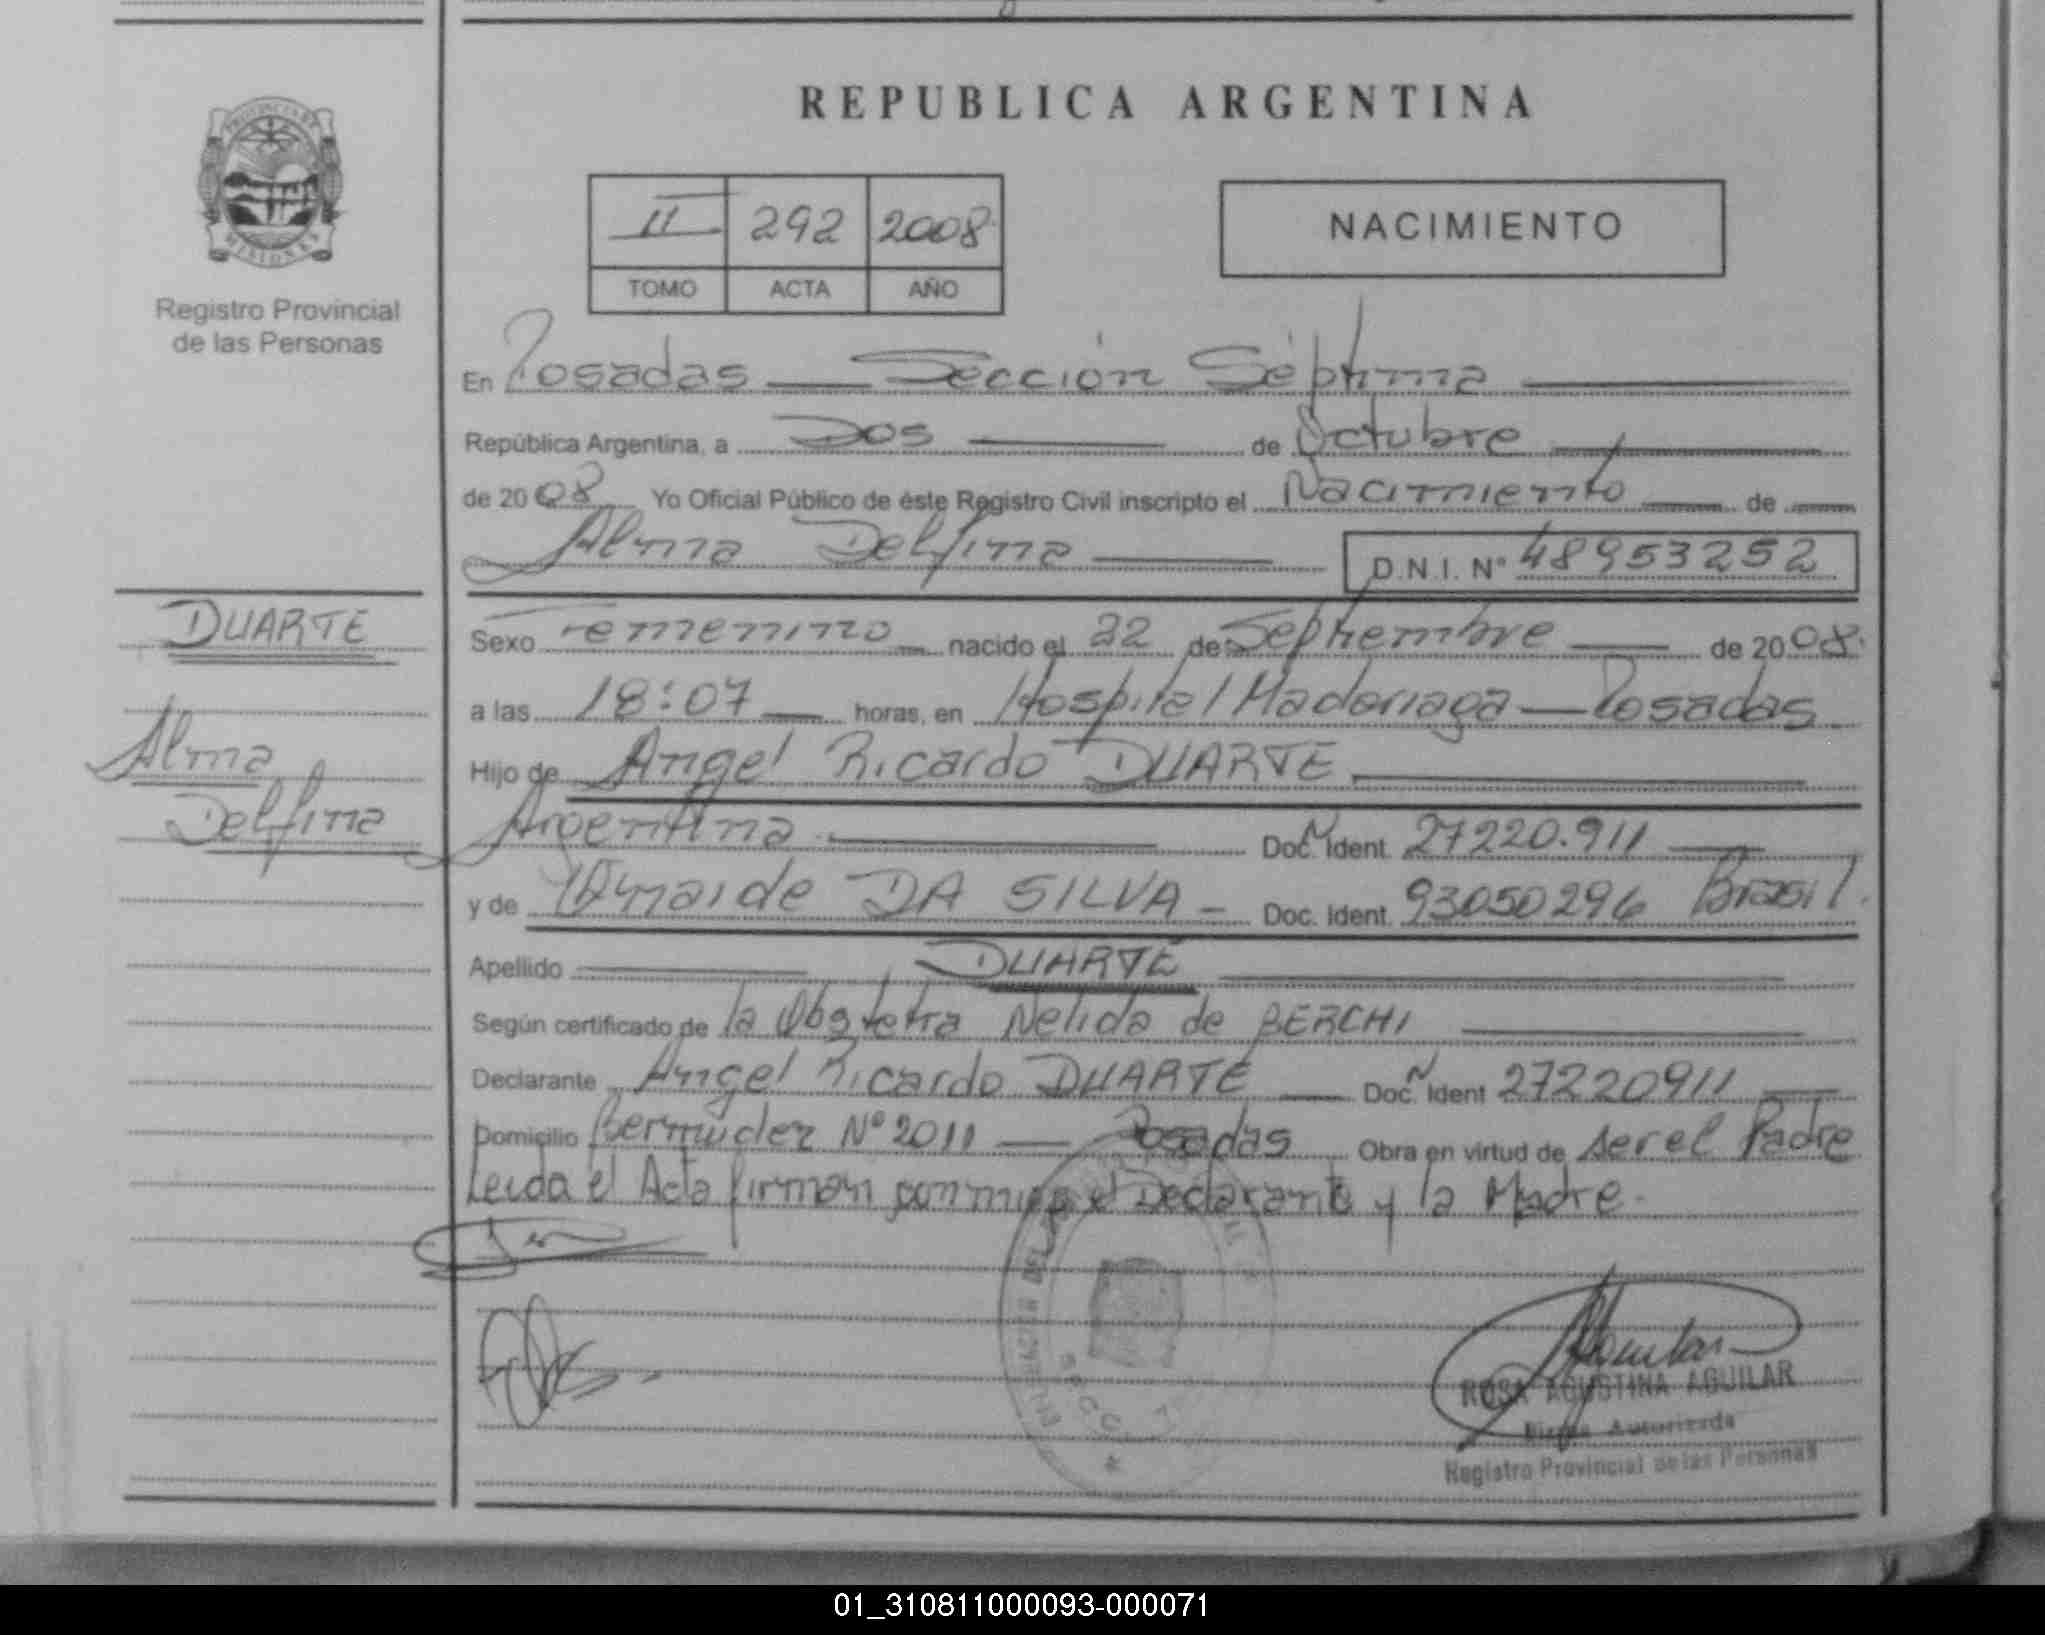 REPUBLICA ARGENTINA
PROVINCIA DE
MISIONES
Registro Provincial
de las Personas
II 292 2008
TOMO ACTA AÑO
NACIMIENTO
En Posadas — Sección Séptima
República Argentina, a Dos de Octubre
de 2008 Yo Oficial Público de éste Registro Civil inscripto el Nacimiento de
Alma Delfina D.N.I. N° 48953252
DUARTE
Alma
Delfina
Sexo Femenino nacido el 22 de Septiembre de 2008.
a las 18:07 horas, en Hospital Madariaga — Posadas
Hijo de Angel Ricardo DUARTE
Argentina Doc. Ident. 27220.911
y de DA SILVA - Doc. Ident. 93050296 Brasil.
Apellido DUARTE
Según certificado de la Obstetra Nelida de BERCHI
Declarante Angel Ricardo DUARTE Doc. Ident 27220911
Domicilio Bermudez N° 2011 — Posadas Obra en virtud de ser el Padre
Leida el Acta firman conmigo el Declarante y la Madre.
SECC. 7
Aguilar
ROSA AGUSTINA AGUILAR
Firma Autorizada
Registro Provincial de las Personas
01_310811000093-000071